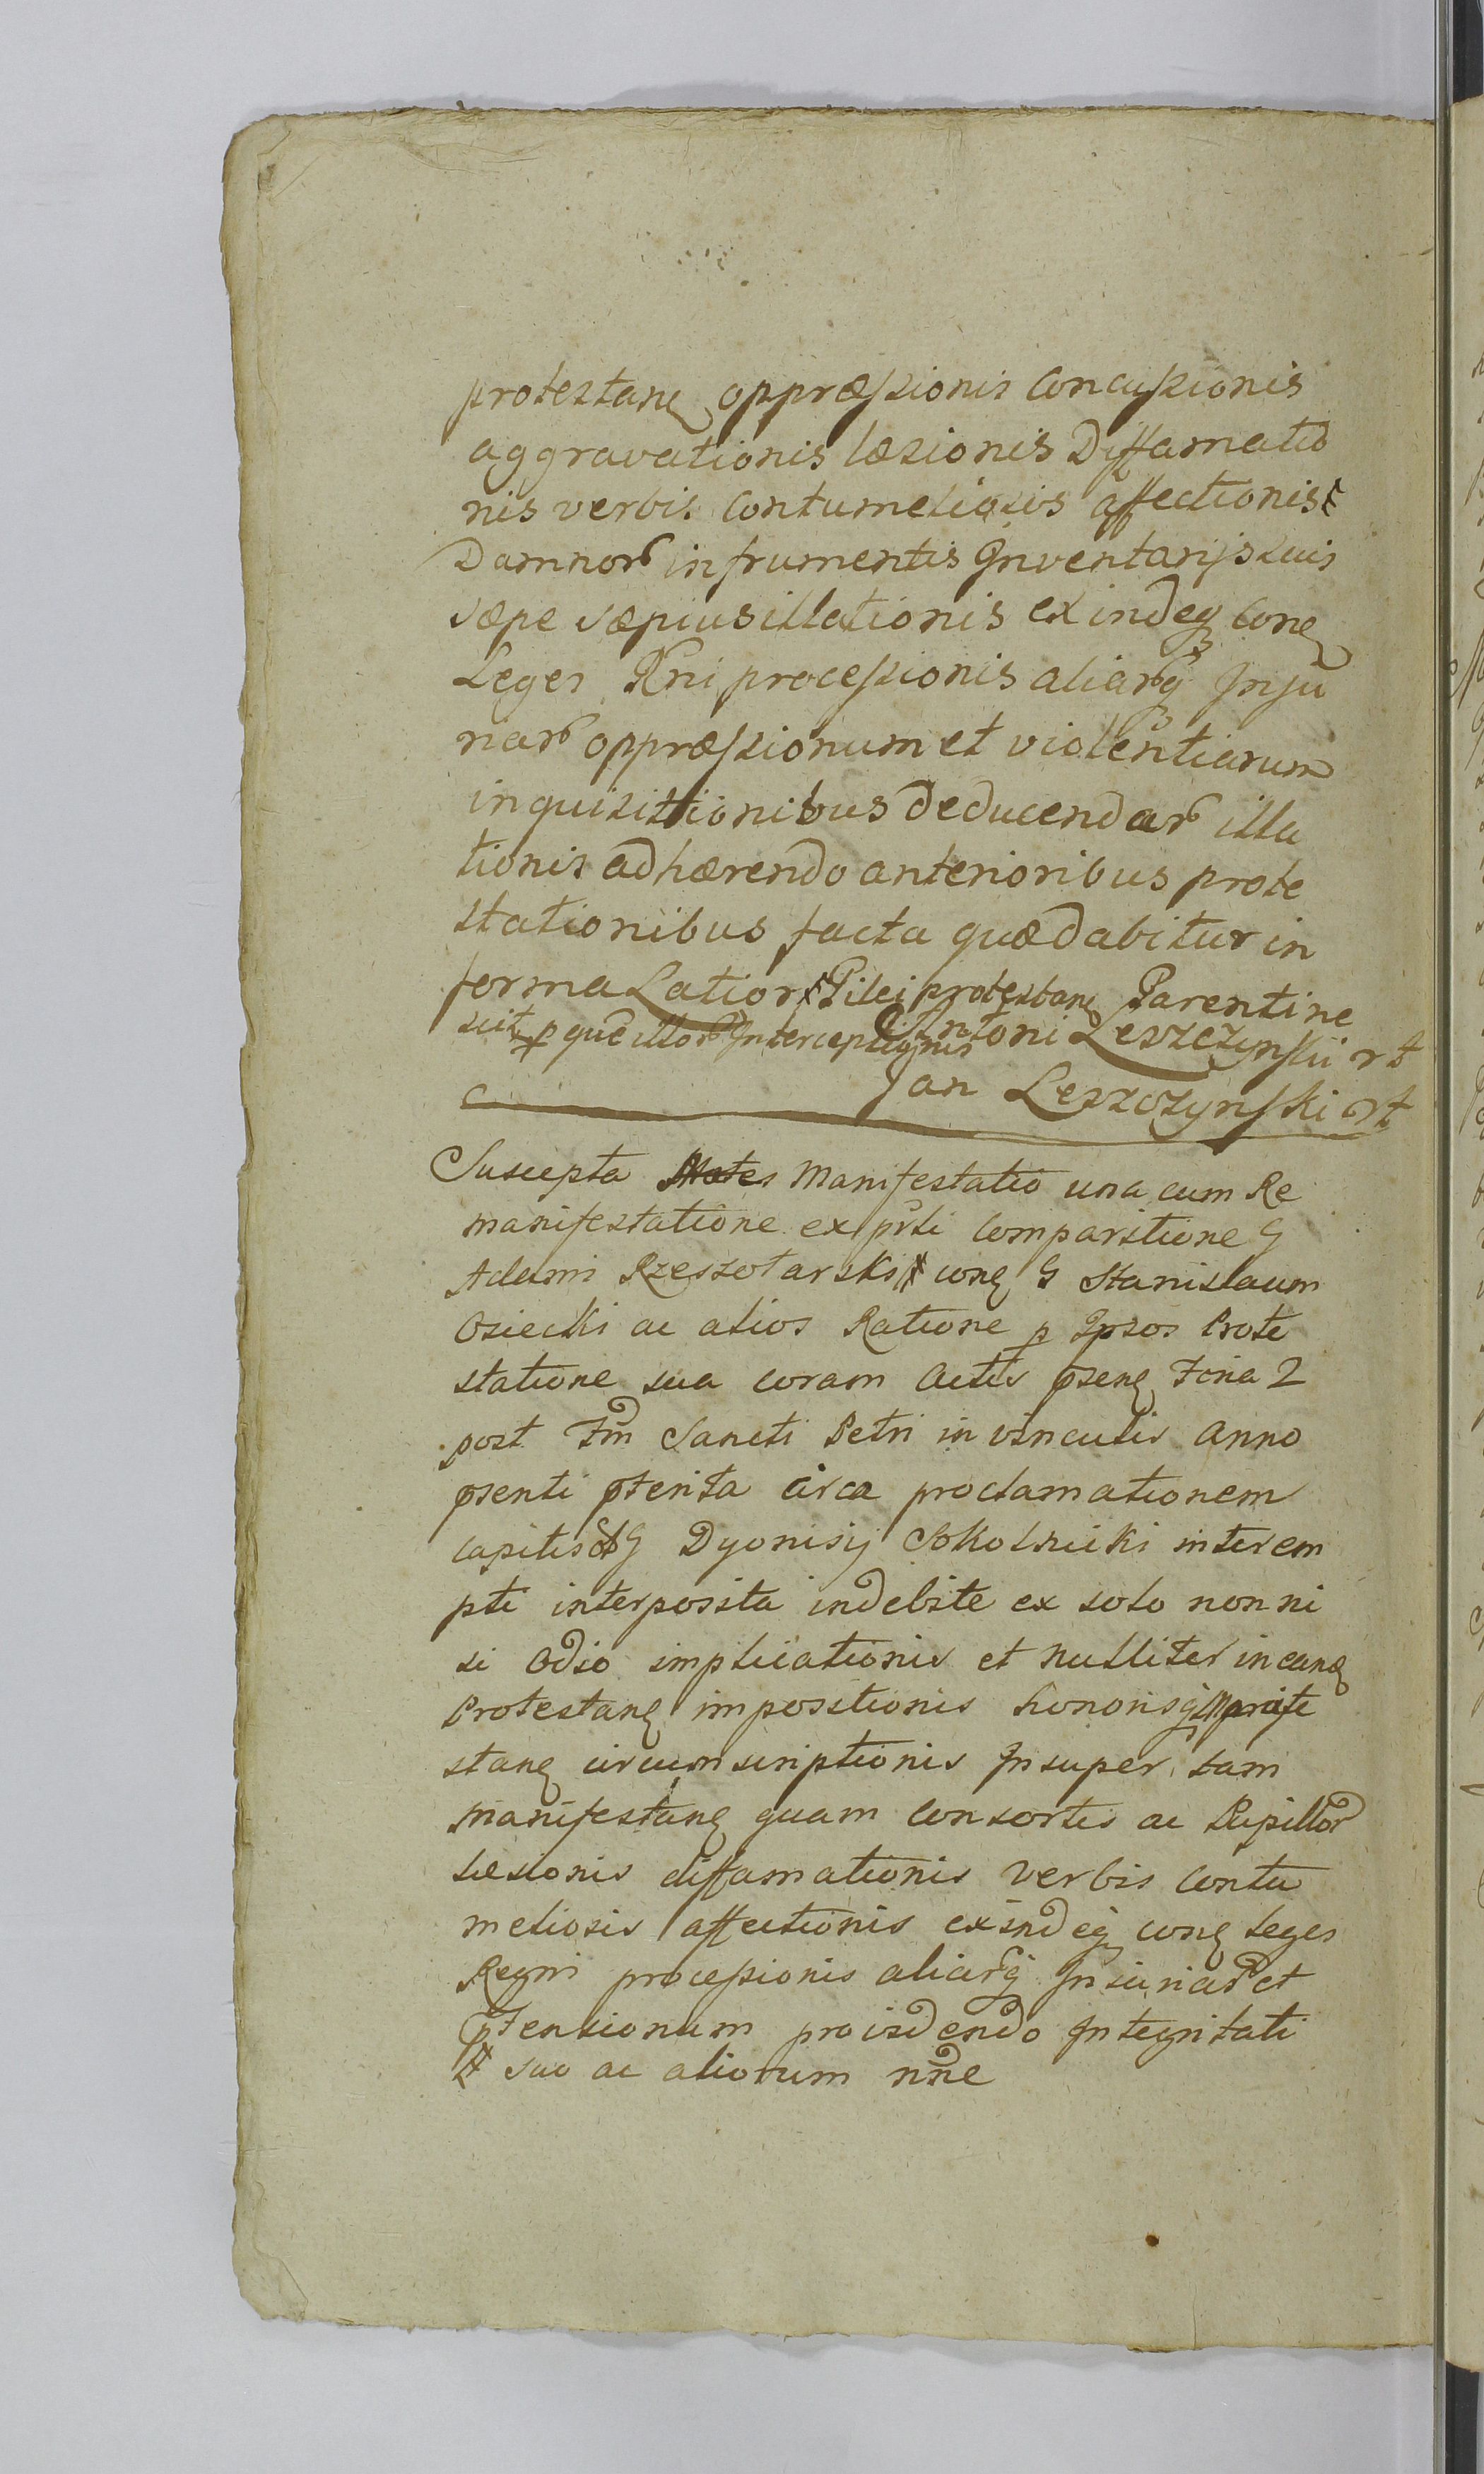 protestanę oppræssionis concussionis
aggravationis læsionis Diffamatio
nis verbis contumeliosis affectionis
Damnor in frumentis Inventarijs suis
sæpe sæpius illationis exindeq conę
Leges Rni processionis aliarq Inju
riar oppræssionum et violentiarum
inquisitionibus deducendar illa
tionis adhærendo anterioribus prote
stationibus facta quæ dabitur in
forma Latiori Pilei protestanę Parenti ne
scit p que illor Interceptionis Antoni Leszczynskii
Jan Leszczynski
Suscepta Manifestatio una cum Re
manifestatione ex prsti comparitione G
Adami Rzeszotarski conę G Stanislaum
Osiecki ac alios Ratione p Ipsos Prote
statione sua coram Actis psenę Feria 2
post Fm Sancti Petri in vinculis Anno
psenti pterita circa proclamationem
capitis G Dyonisij Sokolnicki interem
pti interposita indebite ex solo non ni
si odio implicationis et nulliter in eanę
Protestanę impositionis honorisq
stanę circumscriptionis Insuper tam
manifestanę quam consortis ac Pupillor
læsionis diffamationis verbis contu
meliosis affectionis exindeq conę leges
Regni processionis aliarq Iniuriar et
ptensionum providendo Integritati
suo ac aliorum nne